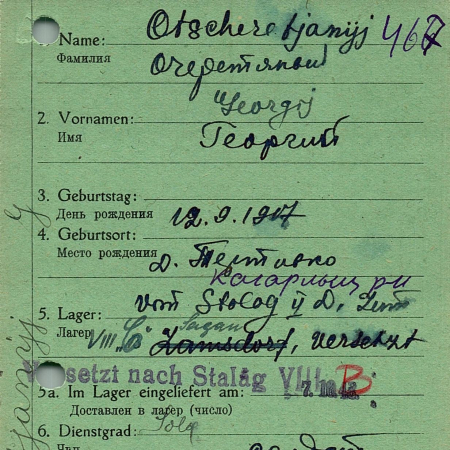 Otscheretjanyj 467
1. Name:
Фамилия Очеретяный
Georgij
2. Vornamen:
Имя Георгий
3. Geburtstag:
День рождения 12.9.1907
4. Geburtsort:
Место рождения
Кагарлыц р-н
vom Stalag II D,
5. Lager: Sagan
Лагер VIII "C" Lamsdorf, versetzt
Versetzt nach Stalag VIII B
5a. Im Lager eingeliefert am:
Доставлен в лагер (число)
6. Dienstgrad: